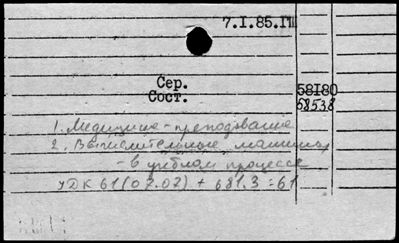 7.I.85.ІП
Сер.
58180
Сост.
58538
1. Медицина - преподавание
2. Вычислительные машины
- в учебном процессе
УДК 61(07.07) + 681.3:61